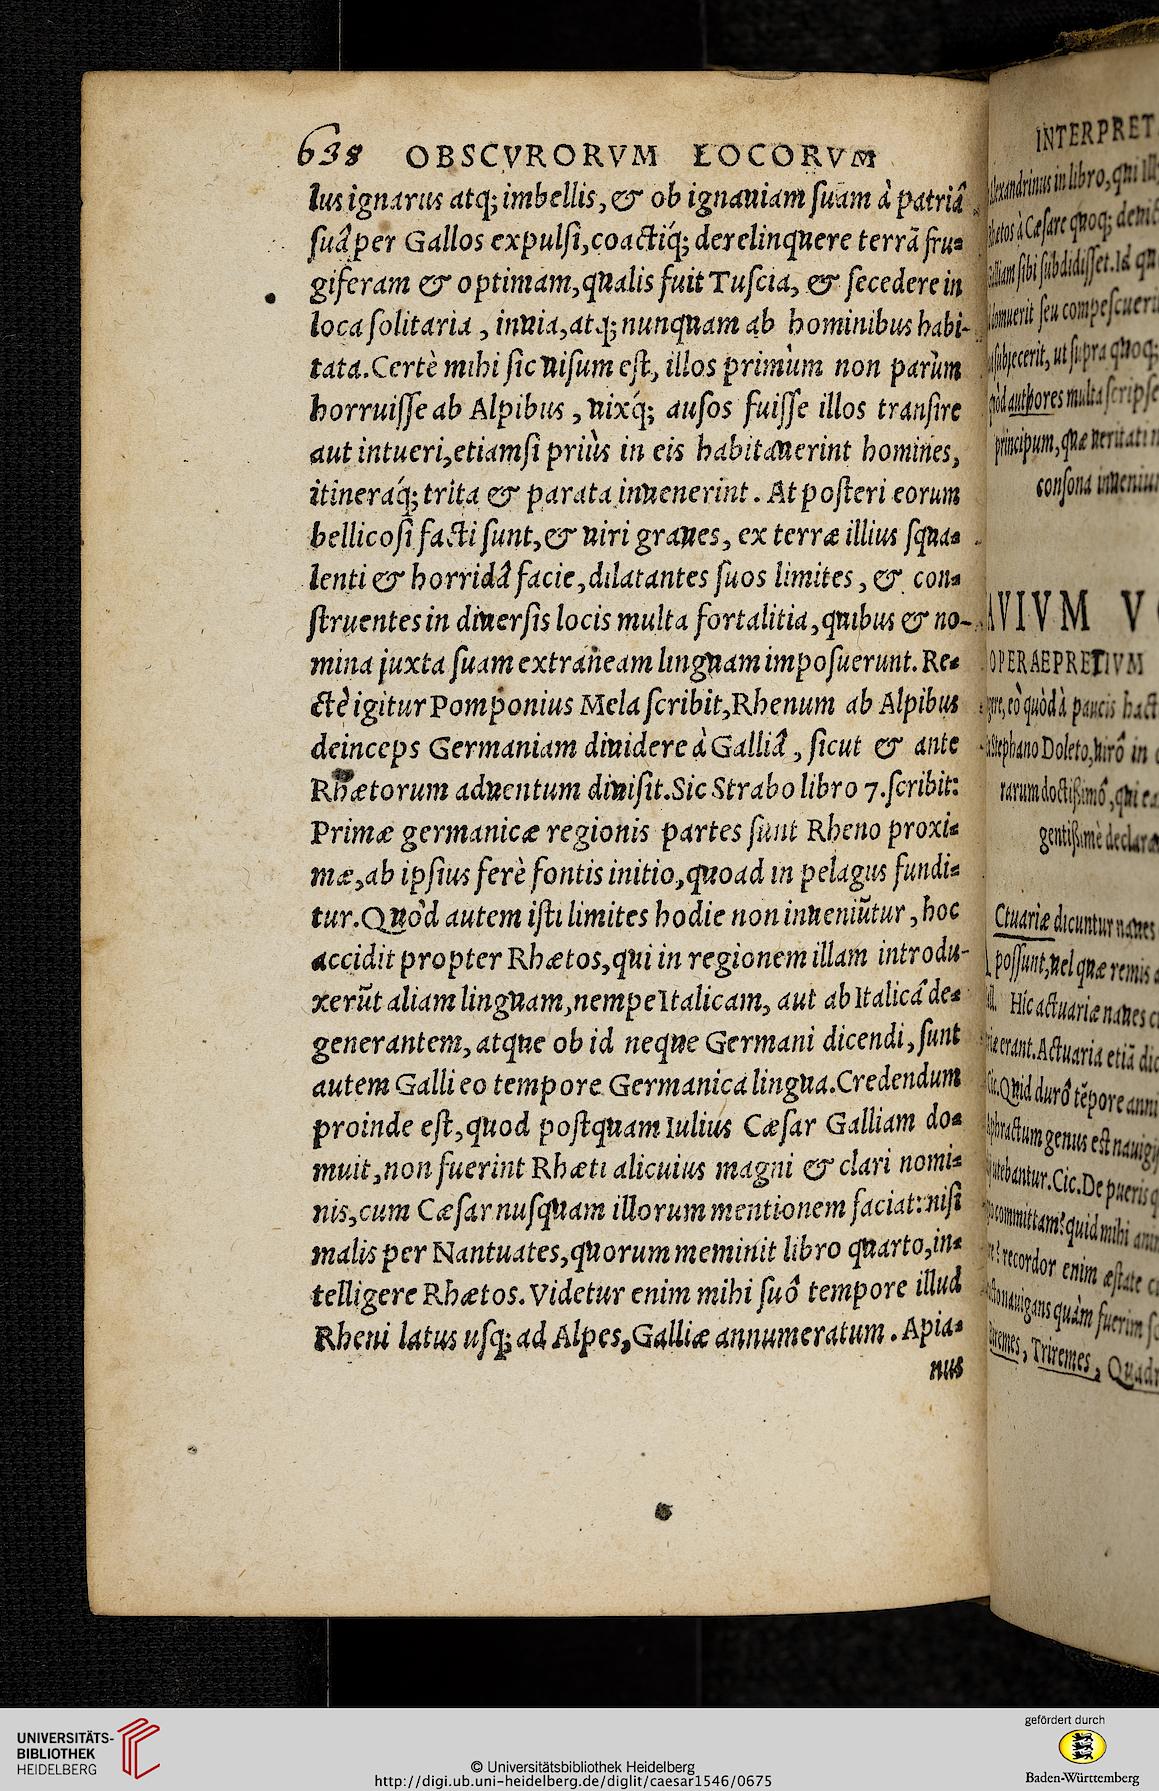 638 OBSCVRORVM LOCORVM
lus ignarus atq; imbellis, & ob ignauiam suam à patriâ
suâ per Gallos expulsi, coactiq́; derelinquere terrã fru=
giferam & optimam, qualis fuit Tuscia, & secedere in
loca solitaria, inuia, atq; nunquam ab hominibus habi-
tata. Certè mihi sic uisum est, illos primùm non parùm
horruisse ab Alpibus, uixq́; ausos fuisse illos transire
aut intueri, etiamsi priùs in eis habitauerint homines,
itineraq́; trita & parata inuenerint. At posteri eorum
bellicosi facti sunt, & uiri graues, ex terræ illius squa=
lenti & horridâ facie, dilatantes suos limites, & con=
struentes in diuersis locis multa fortalitia, quibus & no-
mina juxta suam extraneam linguam imposuerunt. Re=
ctè igitur Pomponius Mela scribit, Rhenum ab Alpibus
deinceps Germaniam diuidere à Galliâ, sicut & ante
Rhætorum aduentum diuisit. Sic Strabo libro 7. scribit:
Primæ germanicæ regionis partes sunt Rheno proxi=
mæ, ab ipsius ferè fontis initio, quoad in pelagus fundi=
tur. Quòd autem isti limites hodie non inueniũtur, hoc
accidit propter Rhætos, qui in regionem illam introdu-
xerũt aliam linguam, nempe Italicam, aut ab Italicâ de=
generantem, atque ob id neque Germani dicendi, sunt
autem Galli eo tempore Germanica lingua. Credendum
proinde est, quod postquam Iulius Cæsar Galliam do=
muit, non fuerint Rhæti alicuius magni & clari nomi=
nis, cum Cæsar nusquam illorum mentionem faciat: nisi
malis per Nantuates, quorum meminit libro quarto, in=
telligere Rhætos. Videtur enim mihi suô tempore illud
Rheni latus usq; ad Alpes, Galliæ annumeratum. Apia=
nus
INTERPRET
lexandrinus in libro, qui
à Cæsare quoq;
sibi subdidisset. Id
seu
ut supra quoq;
authores multa
principum, quæ ueritati
consona
AVIVM V
OPERAEPRETIVM
eò quòd à paucis
Stephano Doleto, uirô in
rarum doctißimô, qui
gentißimè
Ctuariæ dicuntur naues
possunt, uel quæ remis
Hîc actuariæ naues
erant. Actuaria etiã
Quid durô tẽpore anni
genus est
Cic. De pueris
committam? quid mihi
recordor enim æstate
nauigans quàm fuerim
Triremes,
UNIVERSITÄTS-
BIBLIOTHEK
HEIDELBERG
© Universitätsbibliothek Heidelberg
http://digi.ub.uni-heidelberg.de/diglit/caesar1546/0675
gefördert durch
Baden-Württemberg